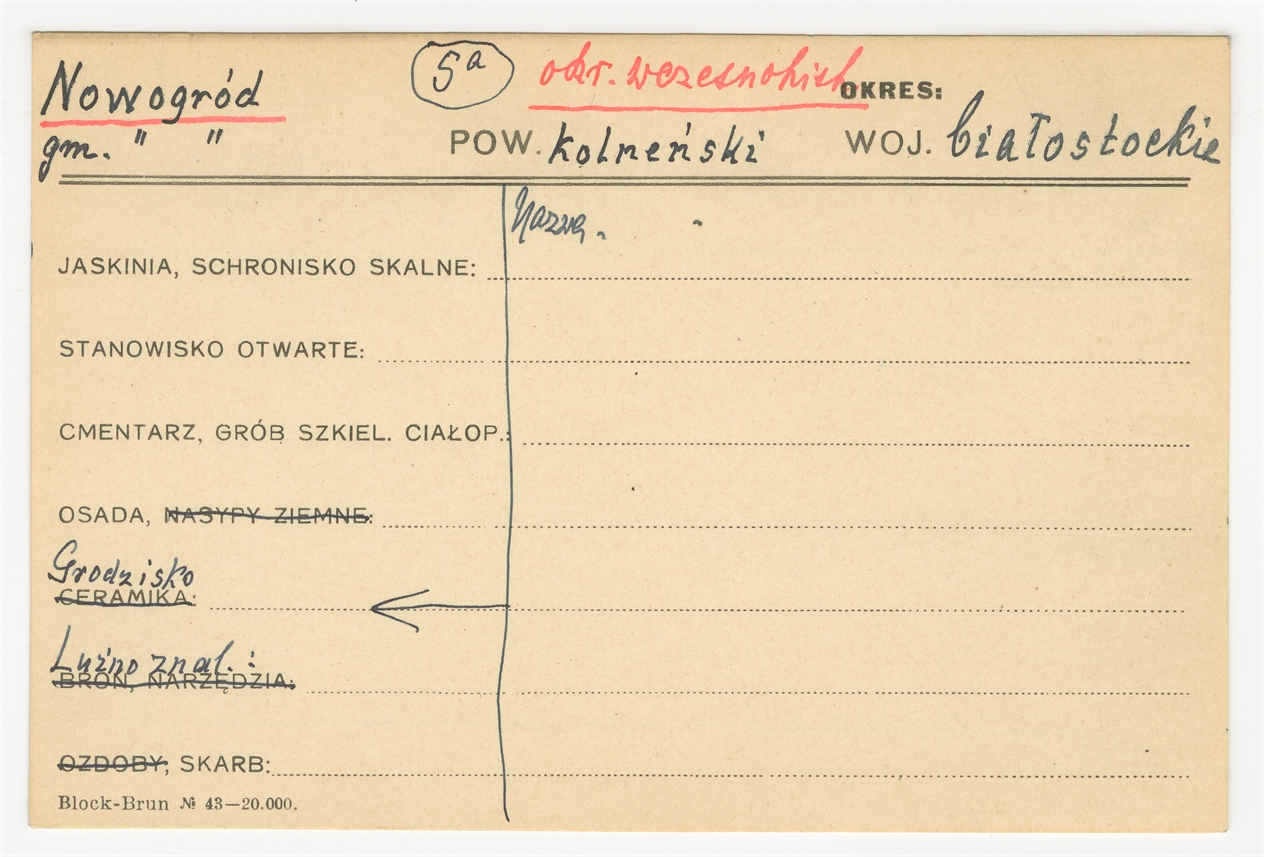 Nowogród 5a okr. wczesnohist. OKRES:
gm. " " POW. kolneński WOJ. białostockie
Nazwa.
JASKINIA, SCHRONISKO SKALNE:
STANOWISKO OTWARTE:
CMENTARZ, GRÓB SZKIEL. CIAŁOP.:
OSADA, NASYPY ZIEMNE:
Grodzisko
CERAMIKA:
Luźno znal. :
BROŃ, NARZĘDZIA:
OZDOBY, SKARB:
Block-Brun № 43—20.000.